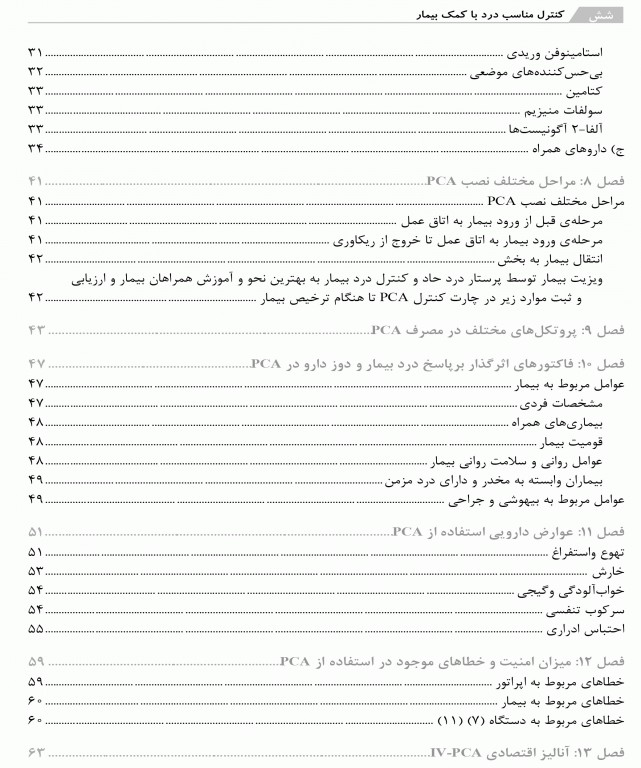 شش کنترل مناسب درد با کمک بیمار
استامینوفن وریدی ........ ۳۱
بی‌حس‌کننده‌های موضعی ........ ۳۲
کتامین ........ ۳۳
سولفات منیزیم ........ ۳۳
آلفا-۲ آگونیست‌ها ........ ۳۳
ج) داروهای همراه ........ ۳۴
فصل ۸: مراحل مختلف نصب PCA ........ ۴۱
مراحل مختلف نصب PCA ........ ۴۱
مرحله‌ی قبل از ورود بیمار به اتاق عمل ........ ۴۱
مرحله‌ی ورود بیمار به اتاق عمل تا خروج از ریکاوری ........ ۴۱
انتقال بیمار به بخش ........ ۴۲
ویزیت بیمار توسط پرستار درد حاد و کنترل درد بیمار به بهترین نحو و آموزش همراهان بیمار و ارزیابی
و ثبت موارد زیر در چارت کنترل PCA تا هنگام ترخیص بیمار ........ ۴۲
فصل ۹: پروتکل‌های مختلف در مصرف PCA ........ ۴۳
فصل ۱۰: فاکتورهای اثرگذار برپاسخ درد بیمار و دوز دارو در PCA ........ ۴۷
عوامل مربوط به بیمار ........ ۴۷
مشخصات فردی ........ ۴۷
بیماری‌های همراه ........ ۴۸
قومیت بیمار ........ ۴۸
عوامل روانی و سلامت روانی بیمار ........ ۴۸
بیماران وابسته به مخدر و دارای درد مزمن ........ ۴۹
عوامل مربوط به بیهوشی و جراحی ........ ۴۹
فصل ۱۱: عوارض دارویی استفاده از PCA ........ ۵۱
تهوع واستفراغ ........ ۵۱
خارش ........ ۵۳
خواب‌آلودگی وگیجی ........ ۵۴
سرکوب تنفسی ........ ۵۴
احتباس ادراری ........ ۵۵
فصل ۱۲: میزان امنیت و خطاهای موجود در استفاده از PCA ........ ۵۹
خطاهای مربوط به اپراتور ........ ۵۹
خطاهای مربوط به بیمار ........ ۶۰
خطاهای مربوط به دستگاه (۷) (۱۱) ........ ۶۰
فصل ۱۳: آنالیز اقتصادی IV-PCA ........ ۶۳